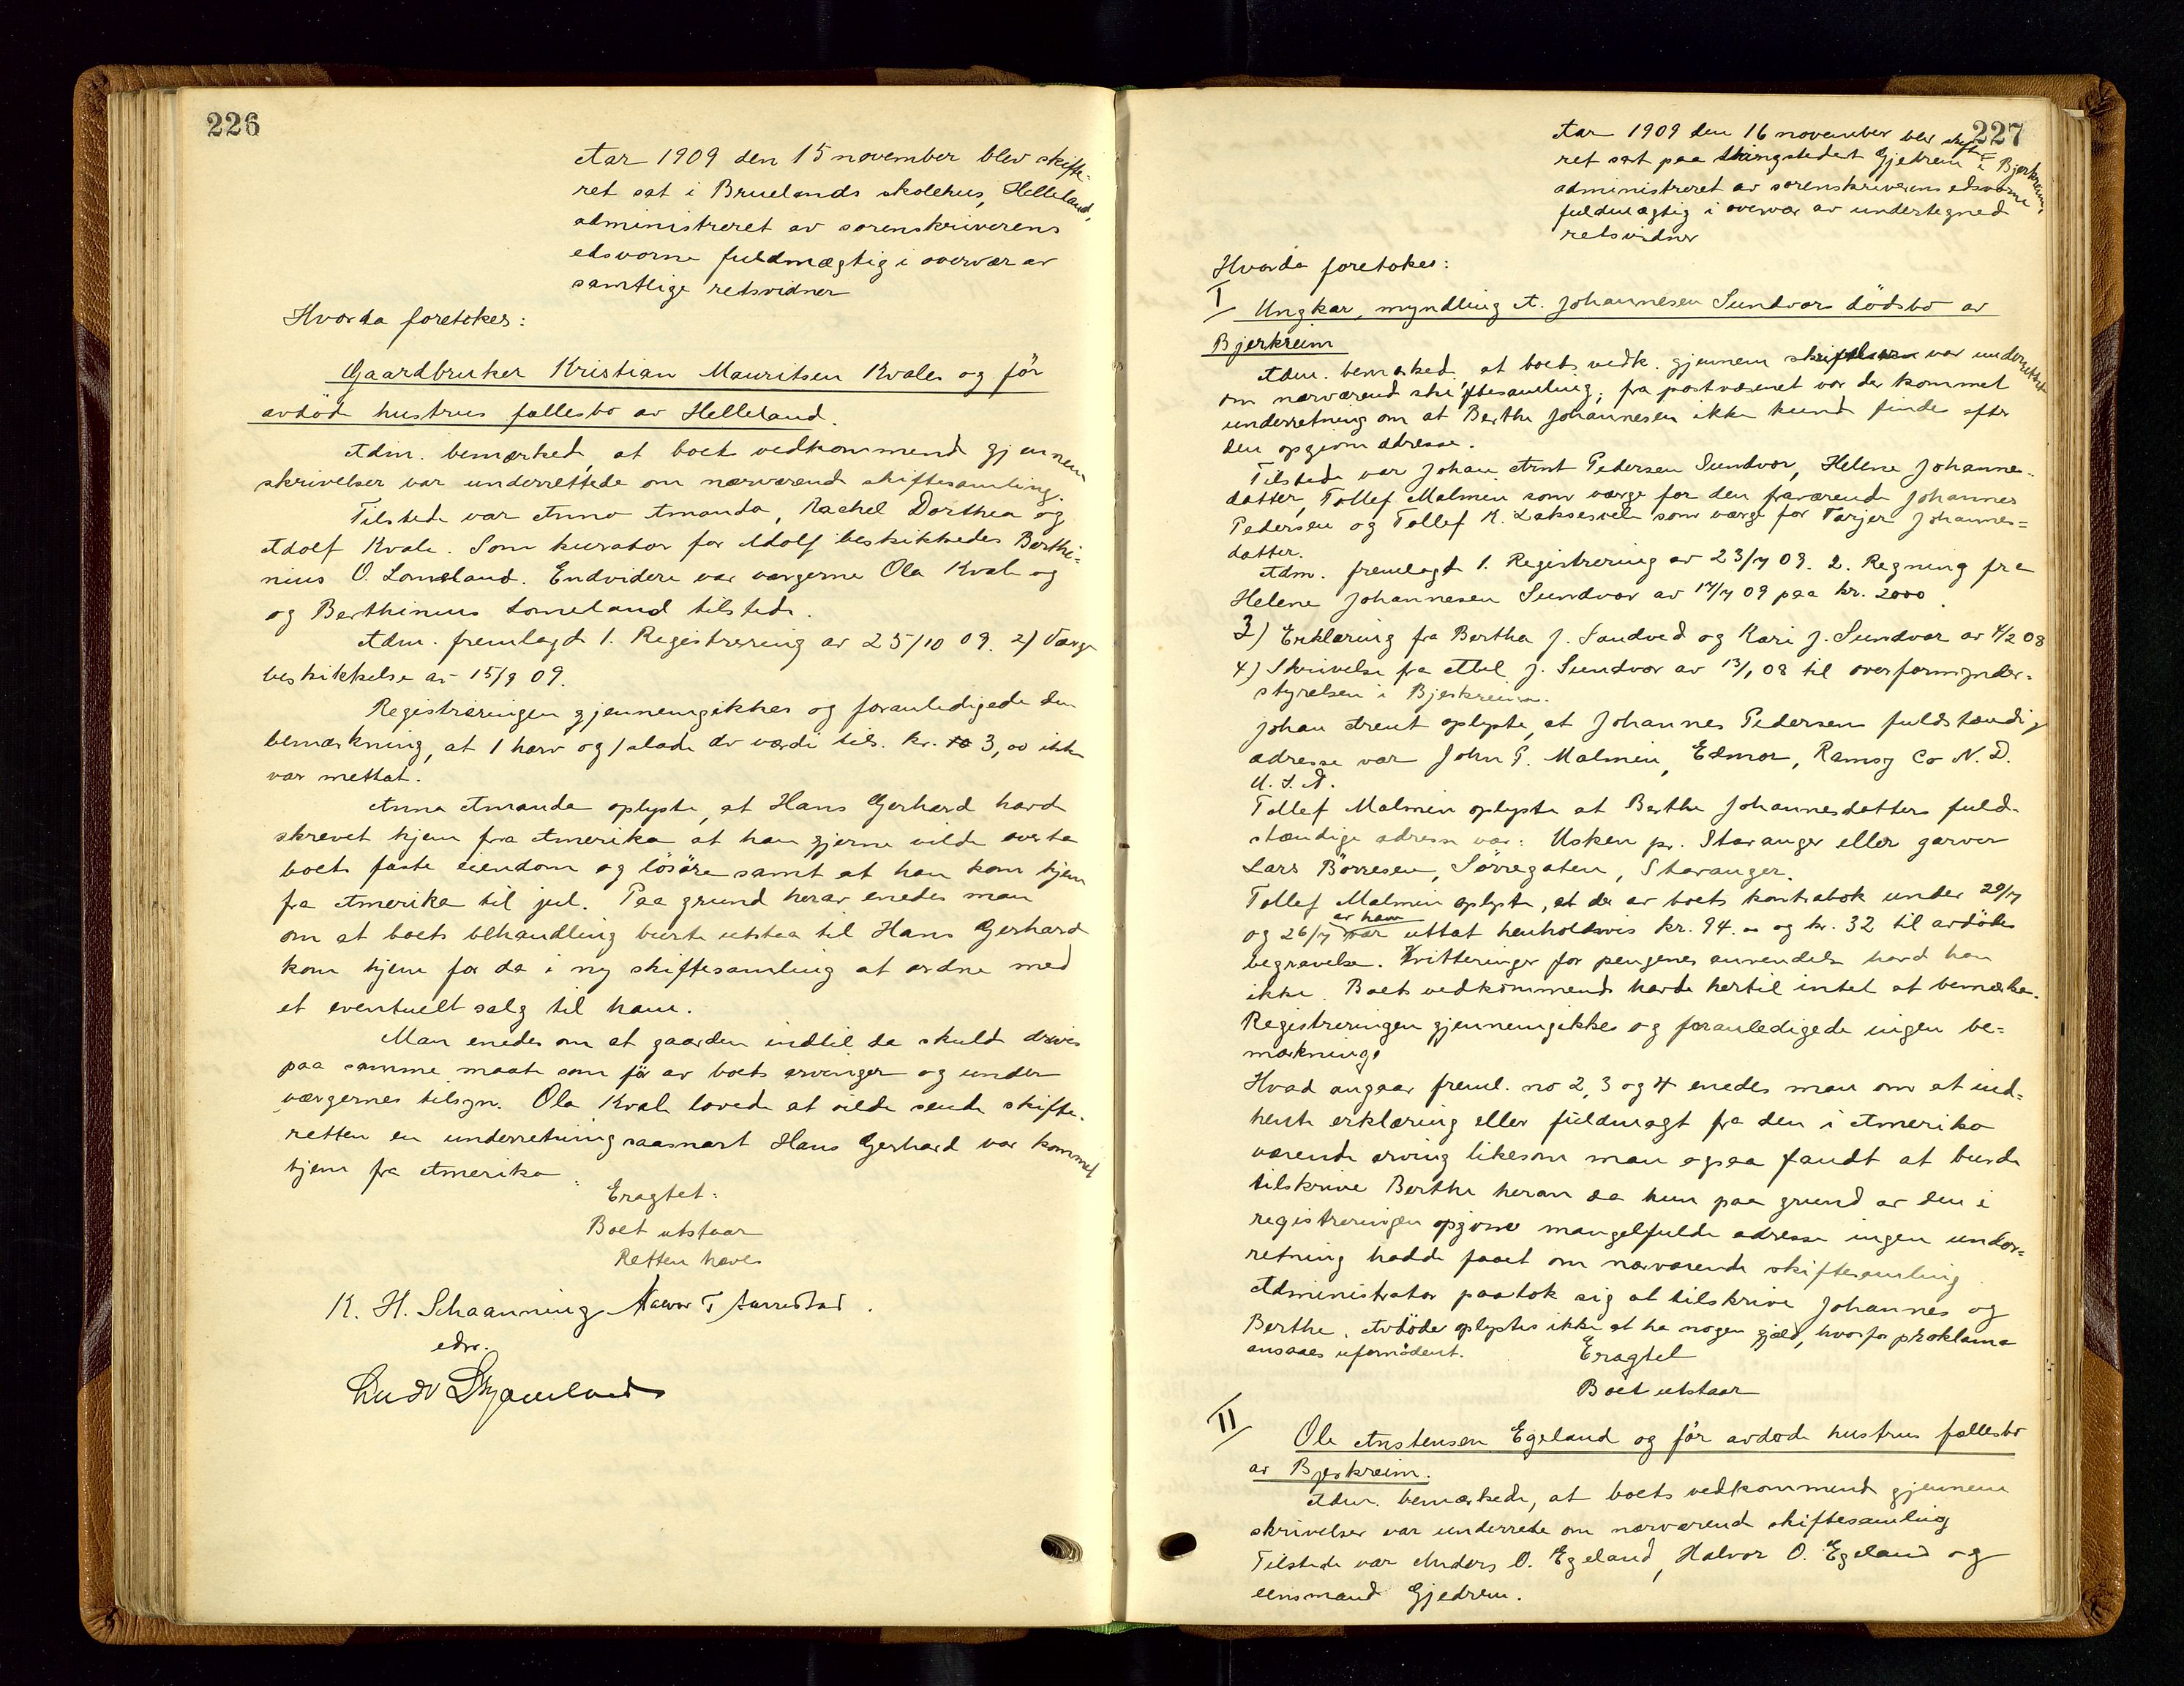 226
Aar 1909 den 15 november blev skifte-
ret sat i Bruelands skolehus, Helleland,
administreret av sorenskriverens
edsvorne fuldmægtig i overvær av
samtlige retsvidner
Hvorda foretokes:
Gaardbruker Kristian Mauritsen Kvales og før
avdøde hustrus fællesbo av Helleland.
Adm. bemærkede, at boets vedkommende gjennem
skrivelser var underrettede om nærværende skiftesamling.
Tilstede var Anna Amanda, Rachel Dorthea og
Adolf Kvale. Som kurator for Adolf beskikkedes Berthi-
nius O. Lomeland. Endvidere var værgerne Ola Kvale og
og Berthinius Lomeland tilstede.
Adm. fremlagde 1. Registrering av 25/10 09. 2) Værge
beskikkelse av 15/9 09.
Registreringen gjennemgikkes og foranledigede den
bemærkning, at 1 harv og 1 slade av værdi tils. kr. 3,00 ikke
var mettat.
Anna Amanda oplyste, at Hans Gerhard havde
skrevet hjem fra Amerika at han gjerne vilde overta
boets faste eiendom og løsøre samt at han kom hjem
fra Amerika til jul. Paa grund herav enedes man
om at boets behandling burte utstaa til Hans Gerhard
kom hjem for da i ny skiftesamling at ordne med
et eventuelt salg til ham.
Man enedes om at gaarden indtil da skulde drives
paa samme maate som før av boets arvinger og under
værgernes tilsyn. Ola Kvale lovede at vilde sende skifte-
retten en underretning saasnart Hans Gerhard var kommet
hjem fra Amerika.
Eragtet:
Boet utstaar
Retten hæves
K. H. Schaanning T
edsv.
Ludv Skjæveland
227
Aar 1909 den 16 november blev skifte-
ret sat paa thingstedet Gjedrem i Bjerkreim,
administreret av sorenskriverens edsvorne
fuldmægtig i overvær av undertegnede
retsvidner
Hvorda foretokes:
I
Ungkar, myndling A. Johannesen Sundvors dødsbo av
Bjerkreim
Adm. bemærkede at boets vedk. gjennem skrivelser var underrettet
om nærværende skiftesamling; fra postvæsenet var der kommet
underretning om at Berthe Johannesen ikke kunde findes efter
den opgivne adresse.
Tilstede var Johan Arnt Pedersen Sundvor, Helene Johannes-
datter, Tollef Malmin som værge for den fraværende Johannes
Pedersen og Tollef K. Laksesvele som værge for Tarjer Johannes-
datter.
Adm. fremlagde 1. Registrering av 23/7 09. 2. Regning fra
Helene Johannesen Sundvor av 17/7 09 paa kr. 2000.
3) Erklæring fra Bertha J. Sandved og Kari J. Sundvor av 4/2 08
4) Skrivelse fra Abel J. Sundvor av 13/1 08 til overformynder-
styrelsen i Bjerkreim.
Johan Arent oplyste, at Johannes Pedersens fuldstændige
adresse var John P. Malmin, Edmor, Ramsy Co N. D.
U. S. A.
Tollef Malmin oplyste at Berthe Johannesdatters fuld-
stændige adresse var: Usken pr. Stavanger eller garver
Lars Børresen, Sørregaten, Stavanger.
Tollef Malmin oplyste, at der av boets kontrabok under 29/7
og 26/7 av ham uttat henholdsvis kr. 94.00 og kr. 32 til avdødes
begravelse. Kvitteringer for pengenes anvendelse havde han
ikke. Boets vedkommende havde hertil intet at bemærke.
Registreringen gjennemgikkes og foranledigede ingen be-
mærkning.
Hvad angaar freml. no 2, 3 og 4 enedes man om at ind-
hente erklæring eller fuldmagt fra den i Amerika
værende arving likesom man ogsaa fandt at burde
tilskrive Berthe herom da hun paa grund av den i
registreringen opgivne mangelfulde adresse ingen under-
retning hadde faaet om nærværende skiftesamling.
Administrator paatok sig at tilskrive Johannes og
Berthe. Avdøde oplystes ikke at ha nogen gjæld, hvorfor proklama
ansaaes ufornødent.
Eragtet
Boet utstaar
II
Ole Anstensen Egeland og før avdøde hustrus fællesbo
av Bjerkreim.
Adm. bemærkede, at boets vedkommende gjennem
skrivelser var underrede om nærværende skiftesamling
Tilstede var Anders O. Egeland, Halvor O. Egeland og
lensmand Gjedrem.